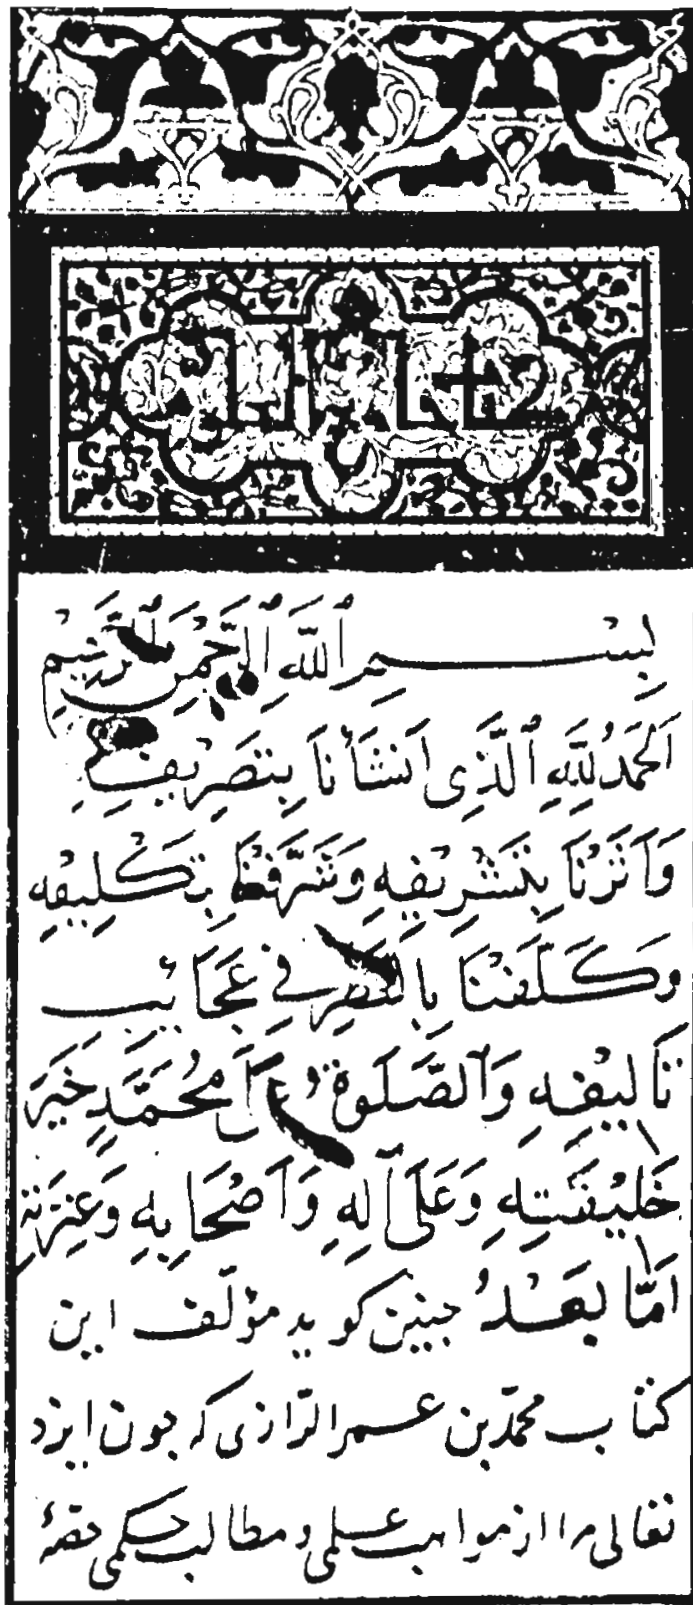 بِسْمِ ٱللّٰهِ ٱلرَّحْمٰنِ ٱلرَّحِيمِ
اَلْحَمْدُ لِلّٰهِ ٱلَّذِى اَنْشَأَنَا بِتَصْرِيفِهِ
وَ بِتَشْرِيفِهِ وَشَرَّفَنَا بِتَكْلِيفِهِ
وَكَلَّفَنَا فِي عَجَائِبِ
تَأْلِيفِهِ وَٱلصَّلَوةُ عَلَى مُحَمَّدٍ خَيْرِ
خَلِيْفَتِهِ وَعَلَى آلِهِ وَاَصْحَابِهِ وَعِتْرَتِهِ
اَمَّا بَعْدُ جنين كويد مؤلّف اين
كتاب محمّد بن عمر الرّازى كه جون ايزد
تعالى مرا از مواهب علمى و مطالب حكمى حصّهٔ